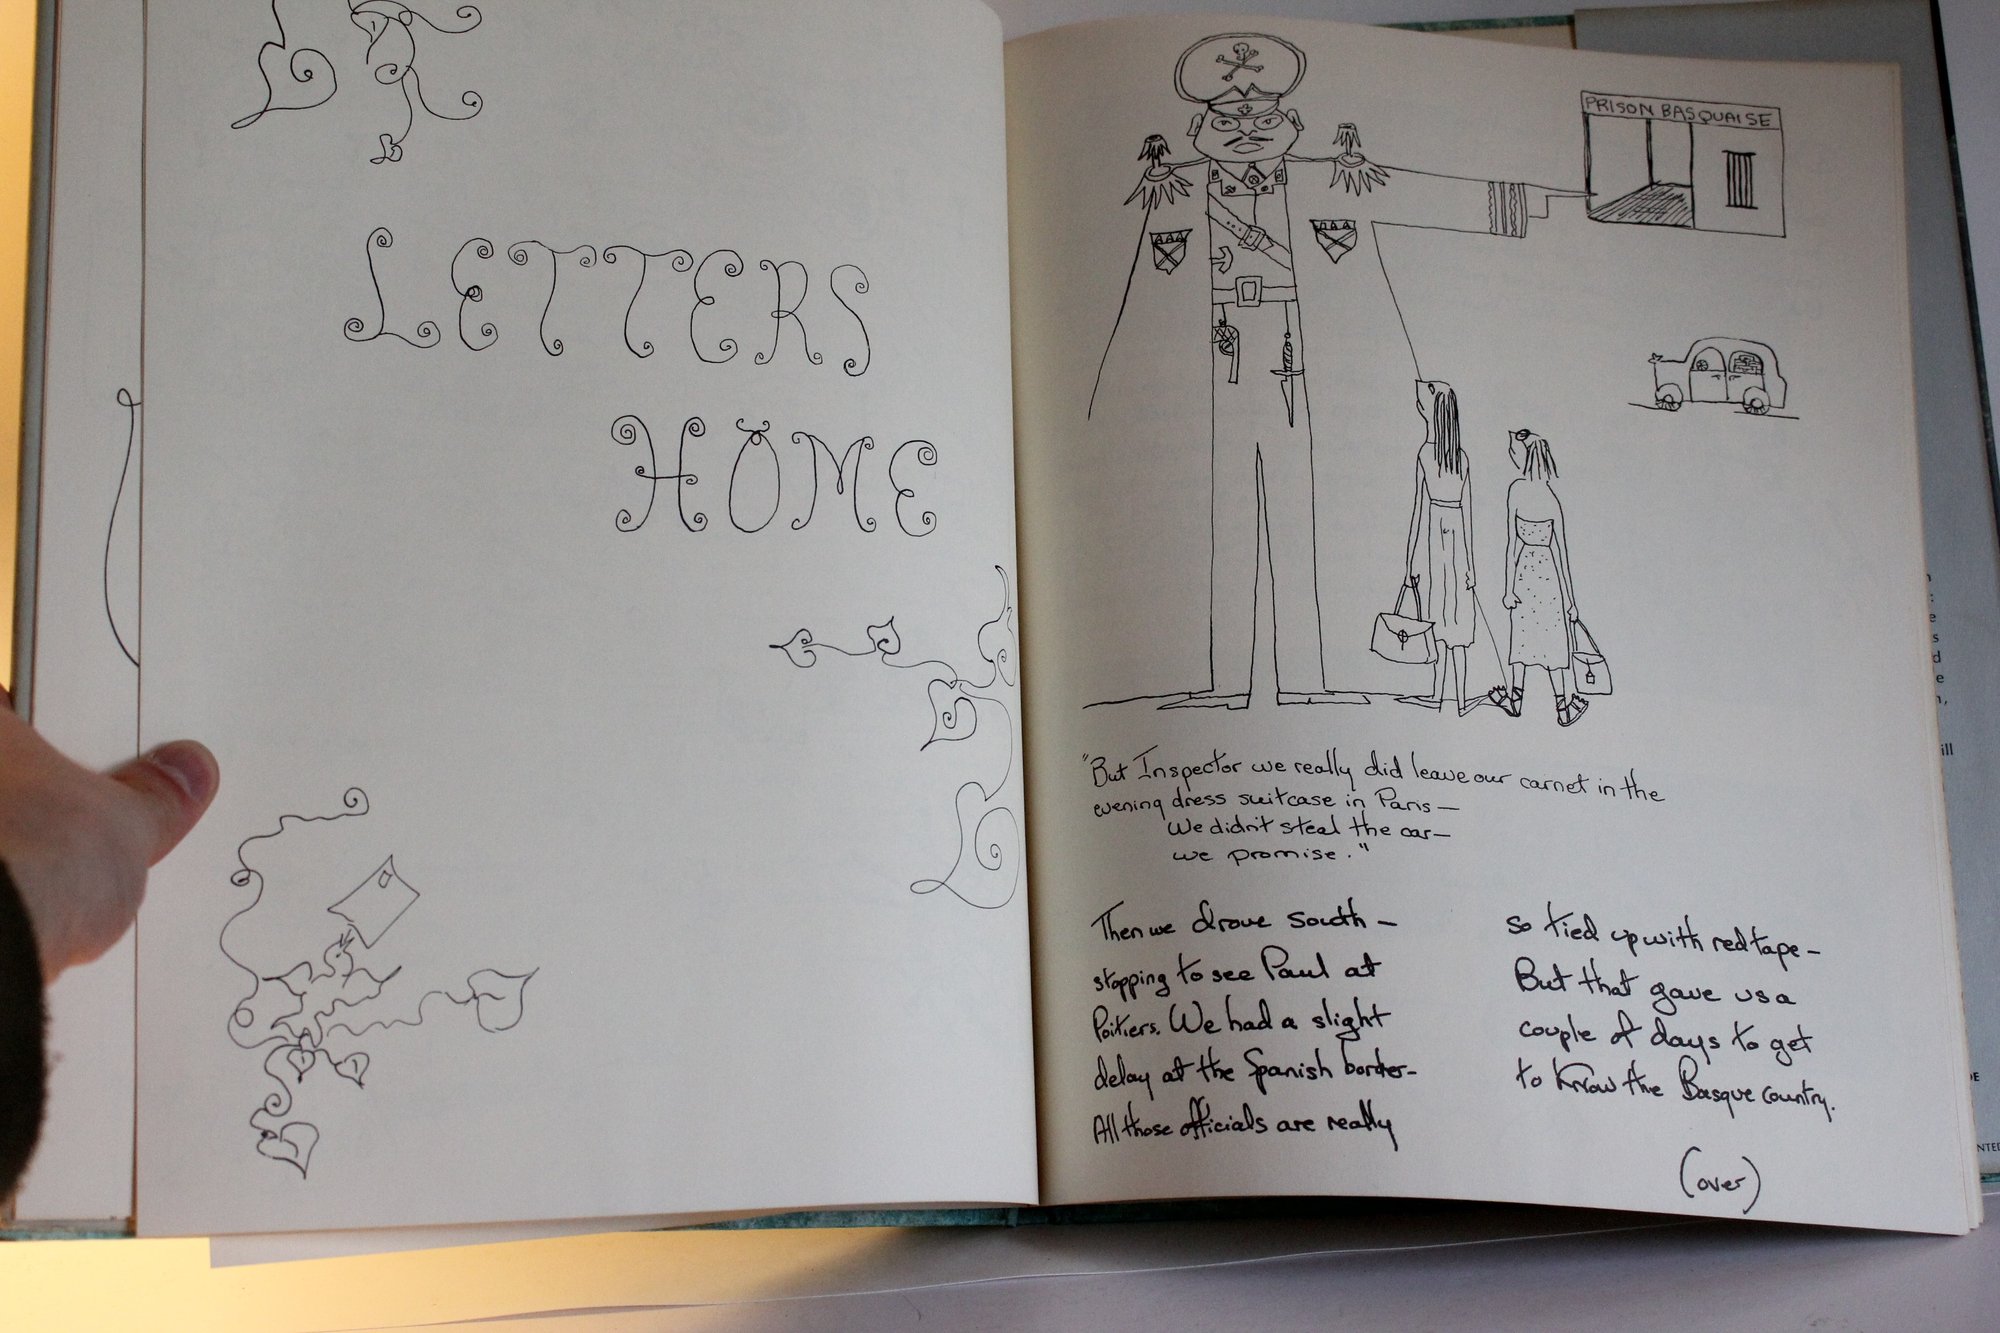 LETTERS
HOME
PRISON BASQUAISE
"But Inspector we really did leave our carnet in the
evening dress suitcase in Paris—
We didn't steal the car—
we promise."
Then we drove south —
stopping to see Paul at
Poitiers. We had a slight
delay at the Spanish border—
All those officials are really
so tied up with red tape —
But that gave us a
couple of days to get
to know the Basque country.
(over)